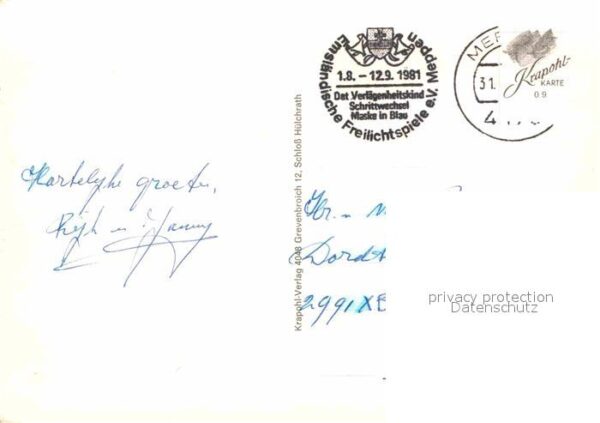 Hartelyke groeten,
Emsländische Freilichtspiele e.V. Meppen
1.8. – 12.9. 1981
Dat Verlägenheitskind
Schrittwechsel
Maske in Blau
MEP
31.
4
Krapohl-
KARTE
0.9
Krapohl-Verlag 4048 Grevenbroich 12, Schloß Hülchrath
Hr. u
Dordt
2991 XE
privacy protection
Datenschutz